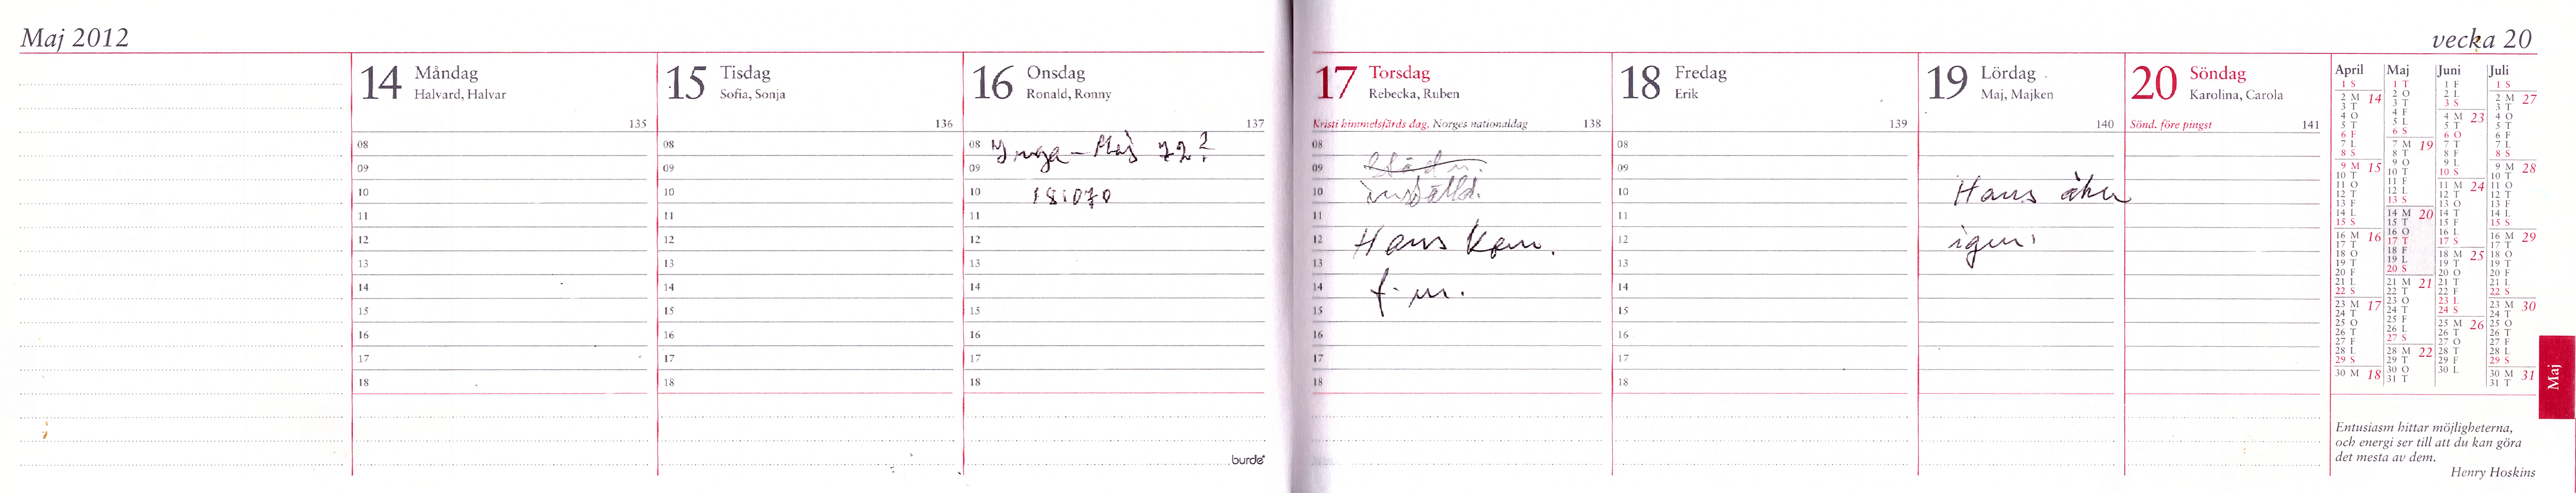 Maj 2012
vecka 20
14 Måndag
Halvard, Halvar
135
08
09
10
11
12
13
14
15
16
17
18
15 Tisdag
Sofia, Sonja
136
08
09
10
11
12
13
14
15
16
17
18
16 Onsdag
Ronald, Ronny
137
08 Inga-Maj 72?
09
10 181070
11
12
13
14
15
16
17
18
burde
17 Torsdag
Rebecka, Ruben
Kristi himmelsfärds dag, Norges nationaldag 138
08
09 Städn.
10 inställd.
11
12 Hans kom.
13
14 f.m.
15
16
17
18
18 Fredag
Erik
139
08
09
10
11
12
13
14
15
16
17
18
19 Lördag
Maj, Majken
140
Hans åker
igen
20 Söndag
Karolina, Carola
Sönd. före pingst 141
April
1 S
2 M 14
3 T
4 O
5 T
6 F
7 L
8 S
9 M 15
10 T
11 O
12 T
13 F
14 L
15 S
16 M 16
17 T
18 O
19 T
20 F
21 L
22 S
23 M 17
24 T
25 O
26 T
27 F
28 L
29 S
30 M 18
Maj
1 T
2 O
3 T
4 F
5 L
6 S
7 M 19
8 T
9 O
10 T
11 F
12 L
13 S
14 M 20
15 T
16 O
17 T
18 F
19 L
20 S
21 M 21
22 T
23 O
24 T
25 F
26 L
27 S
28 M 22
29 T
30 O
31 T
Juni
1 F
2 L
3 S
4 M 23
5 T
6 O
7 T
8 F
9 L
10 S
11 M 24
12 T
13 O
14 T
15 F
16 L
17 S
18 M 25
19 T
20 O
21 T
22 F
23 L
24 S
25 M 26
26 T
27 O
28 T
29 F
30 L
Juli
1 S
2 M 27
3 T
4 O
5 T
6 F
7 L
8 S
9 M 28
10 T
11 O
12 T
13 F
14 L
15 S
16 M 29
17 T
18 O
19 T
20 F
21 L
22 S
23 M 30
24 T
25 O
26 T
27 F
28 L
29 S
30 M 31
31 T
Maj
Entusiasm hittar möjligheterna,
och energi ser till att du kan göra
det mesta av dem.
Henry Hoskins